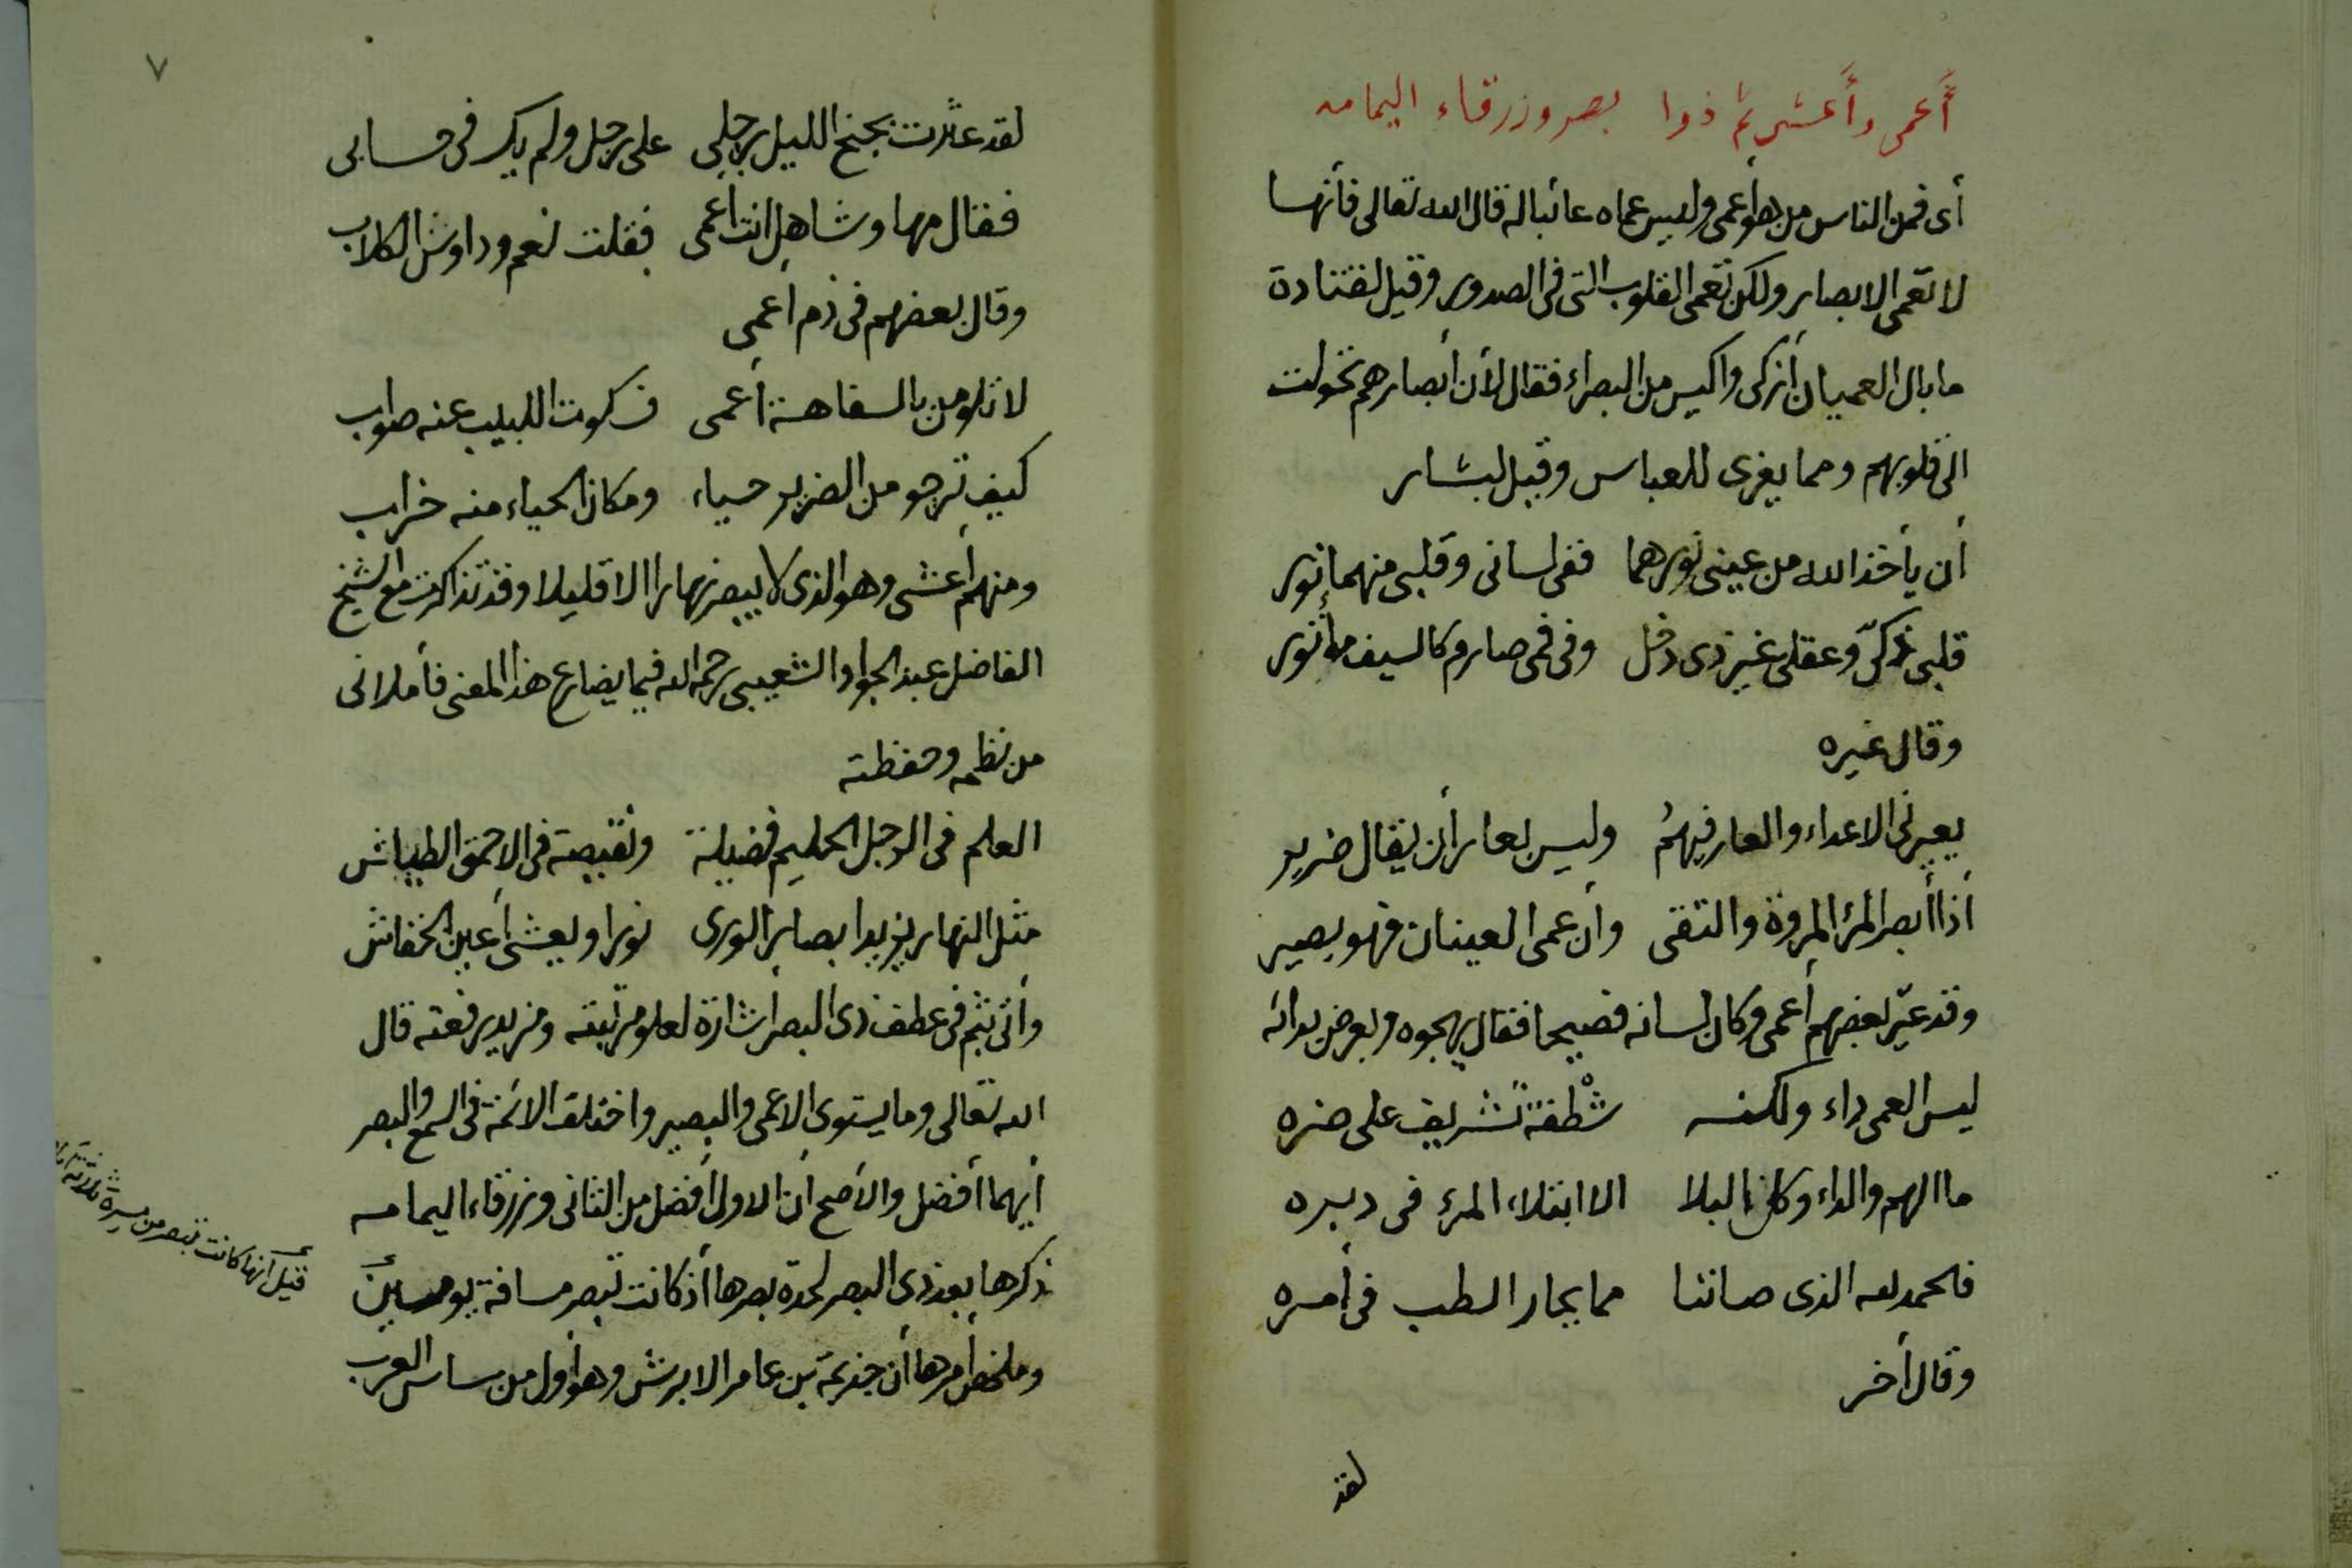 أعمى وأعشى ثم ذوا بصر وزرقاء اليمامه
أى فمن الناس من هو أعمى وليس عماه عائبا له قال الله تعالى فأنها
لا تعمى الابصار ولكن تعمى القلوب التى فى الصدور وقيل لقتادة
ما بال العميان أزكى واكيس من البصراء فقال لأن أبصارهم تحولت
الى قلوبهم ومما يعزى للعباس وقيل لبشار
أن يأخذ الله من عينى نورهما ففى لسانى وقلبى منهما نور
قلبى ذكىّ وعقلى غير ذى دخل وفى فمى صارم كالسيف مأثور
وقال غيره
يعيرنى الاعداء والعار فيهمُ وليس بعار أن يقال ضرير
أذا أبصر المرء المروة والتقى وأن عمى العينان فهو بصير
وقد عيّر بعضهم أعمى وكان لسانه فصيحا فقال يهجوه ويعرض بدائه
ليس العمى داء ولكنه شطفة تشريف على ضره
ما الهم والداء وكل البلا الا ابتلاء المرء فى دبره
فالحمد لله الذى صاننا مما يحار الطب فى أمره
وقال أخر
لقد
٧
لقد عثرت بجنح الليل برجلى على رجل ولم يك فى حسابى
فقال مها وشاهل انت أعمى فقلت نعم وداوش الكلاب
وقال بعضهم فى ذم أعمى
لا تلومن بالسفاهة أعمى فسكوت اللبيب عنه صواب
كيف ترجو من الضرير حياء ومكان الحياء منه خراب
ومنهم أعشى وهو الذى لا يبصر نهارا الا قليلا وقد تذاكرت مع الشيخ
الفاضل عبد الجواد الشعيبى رحمه الله فيما يضارع هذا المعنى فأملانى
من نظمه وحفظته
العلم فى الرجل الحليم فضيلة ونقيصة فى الاحمق الطياش
مثل النهار يزيد ابصار الورى نورا ويعشى أعين الخفاش
وأتى بثم فى عطف ذى البصر أشارة لعلو مرتبته ومزيد رفعته قال
الله تعالى وما يستوى الاعمى والبصير واختلف الائمة فى السمع والبصر
أيهما أفضل والأصح ان الاول أفضل من الثانى وزرقاء اليمامه
ذكرها بعد ذى البصر لحدة بصرها أذ كانت تبصر مسافة يومين
وملخص أمرها أن جذيمة بن عامر الابرش وهو أول من ساس العرب
قيل أنها كانت تبصر من مسيرة ثلاثة